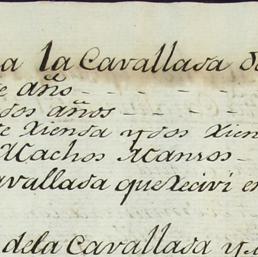 a la Cavallada d
e año - - - -
dos años - - - -
e Rienda y dos Rien
Machos Mansos -
avallada que Recivi e
dela Cavallada y